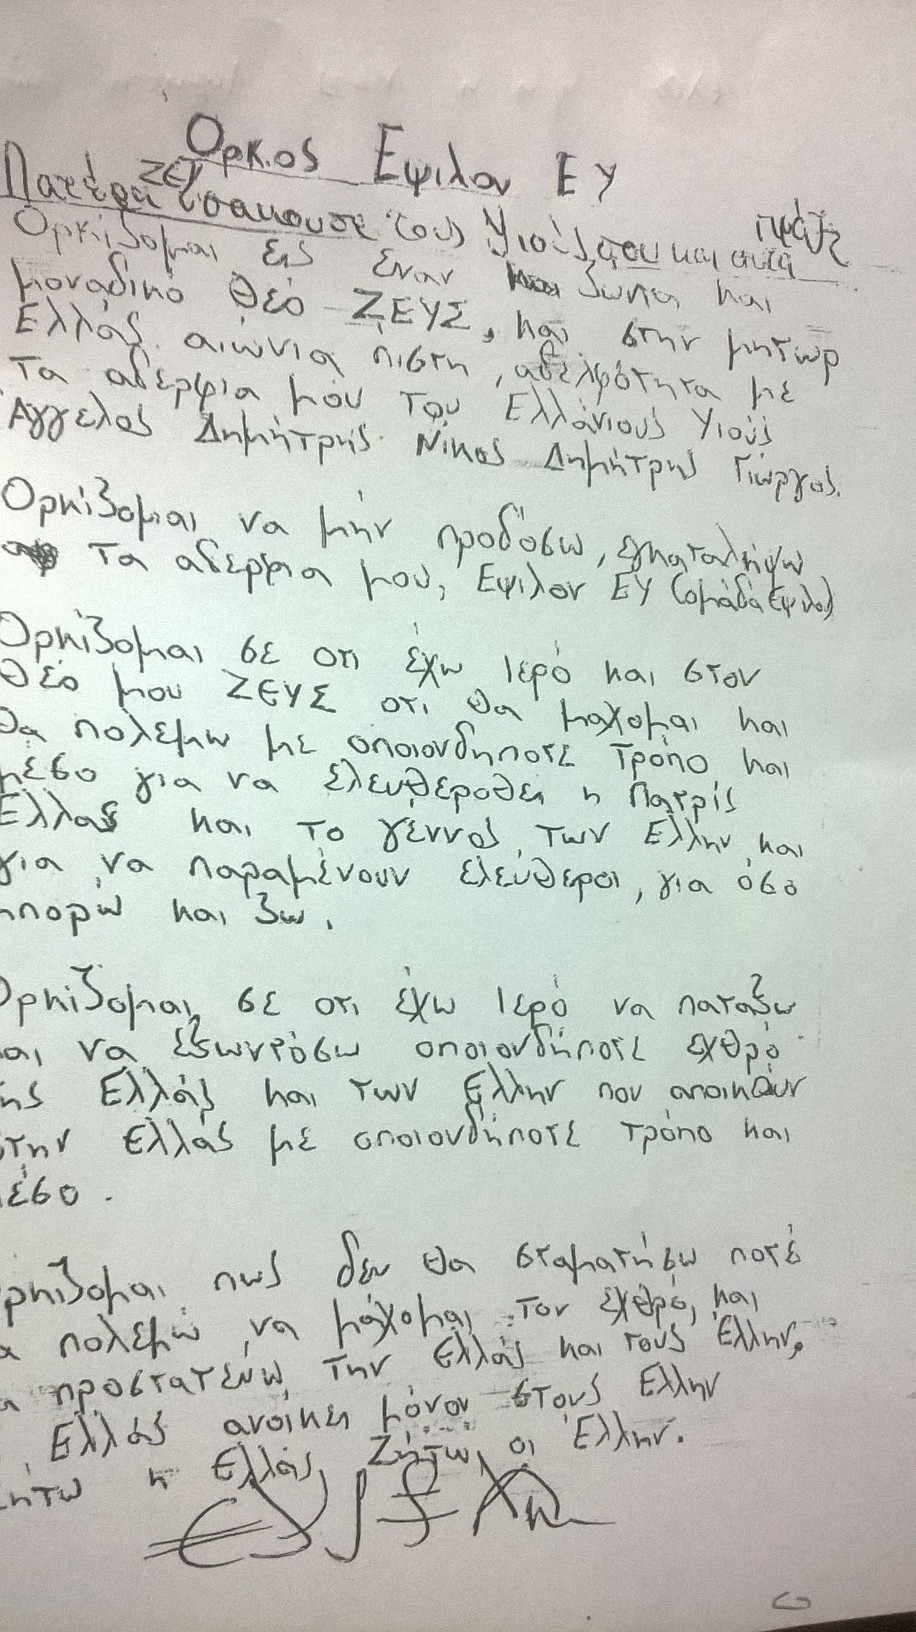 Ορκος Εψιλον ΕΥ
Πατέρα ΖΕΥ εισακουσε τους Υιούς σου και αυτά πράξε
Ορκίζομαι εις έναν ζωντα και
μοναδικό θεό ΖΕΥΣ, και στην μητωρ
Ελλάς αιώνια πιστη, αδελφότητα με
Τα αδερφια μου του Ελλάνιους Υιούς
Άγγελος Δημήτρης Νίκος Δημήτρης Γιώργος.
Ορκίζομαι να μην προδόσω, εγκαταλήψω
τα αδερφια μου, Εψιλον ΕΥ (ομάδα Εψιλον)
Ορκίζομαι σε οτι έχω Ιερό και στον
θεό μου ΖΕΥΣ οτι θα μάχομαι και
θα πολεμω με οποιονδηποτε τρόπο και
μέσο για να ελευθεροθει η Πατρίς
Ελλας και το γέννος των Ελλην και
για να παραμένουν ελεύθεροι, για όσο
μπορώ και ζω.
Ορκίζομαι σε οτι έχω Ιερό να παταξω
αι να εξωντόσω οποιονδήποτε εχθρό
ης Ελλάς και των Ελλην που αποικούν
στην Ελλάς με οποιονδήποτε τρόπο και
μέσο.
ρκιζομαι πως δεν θα σταματήσω ποτέ
α πολεμώ να μάχομαι τον εχθρό, και
α προστατεύω την Ελλάς και τους Έλλην,
Ελλάς ανοίκει μόνον στους Ελλην
ήτω η Ελλάς Ζήτω οι Έλλην.